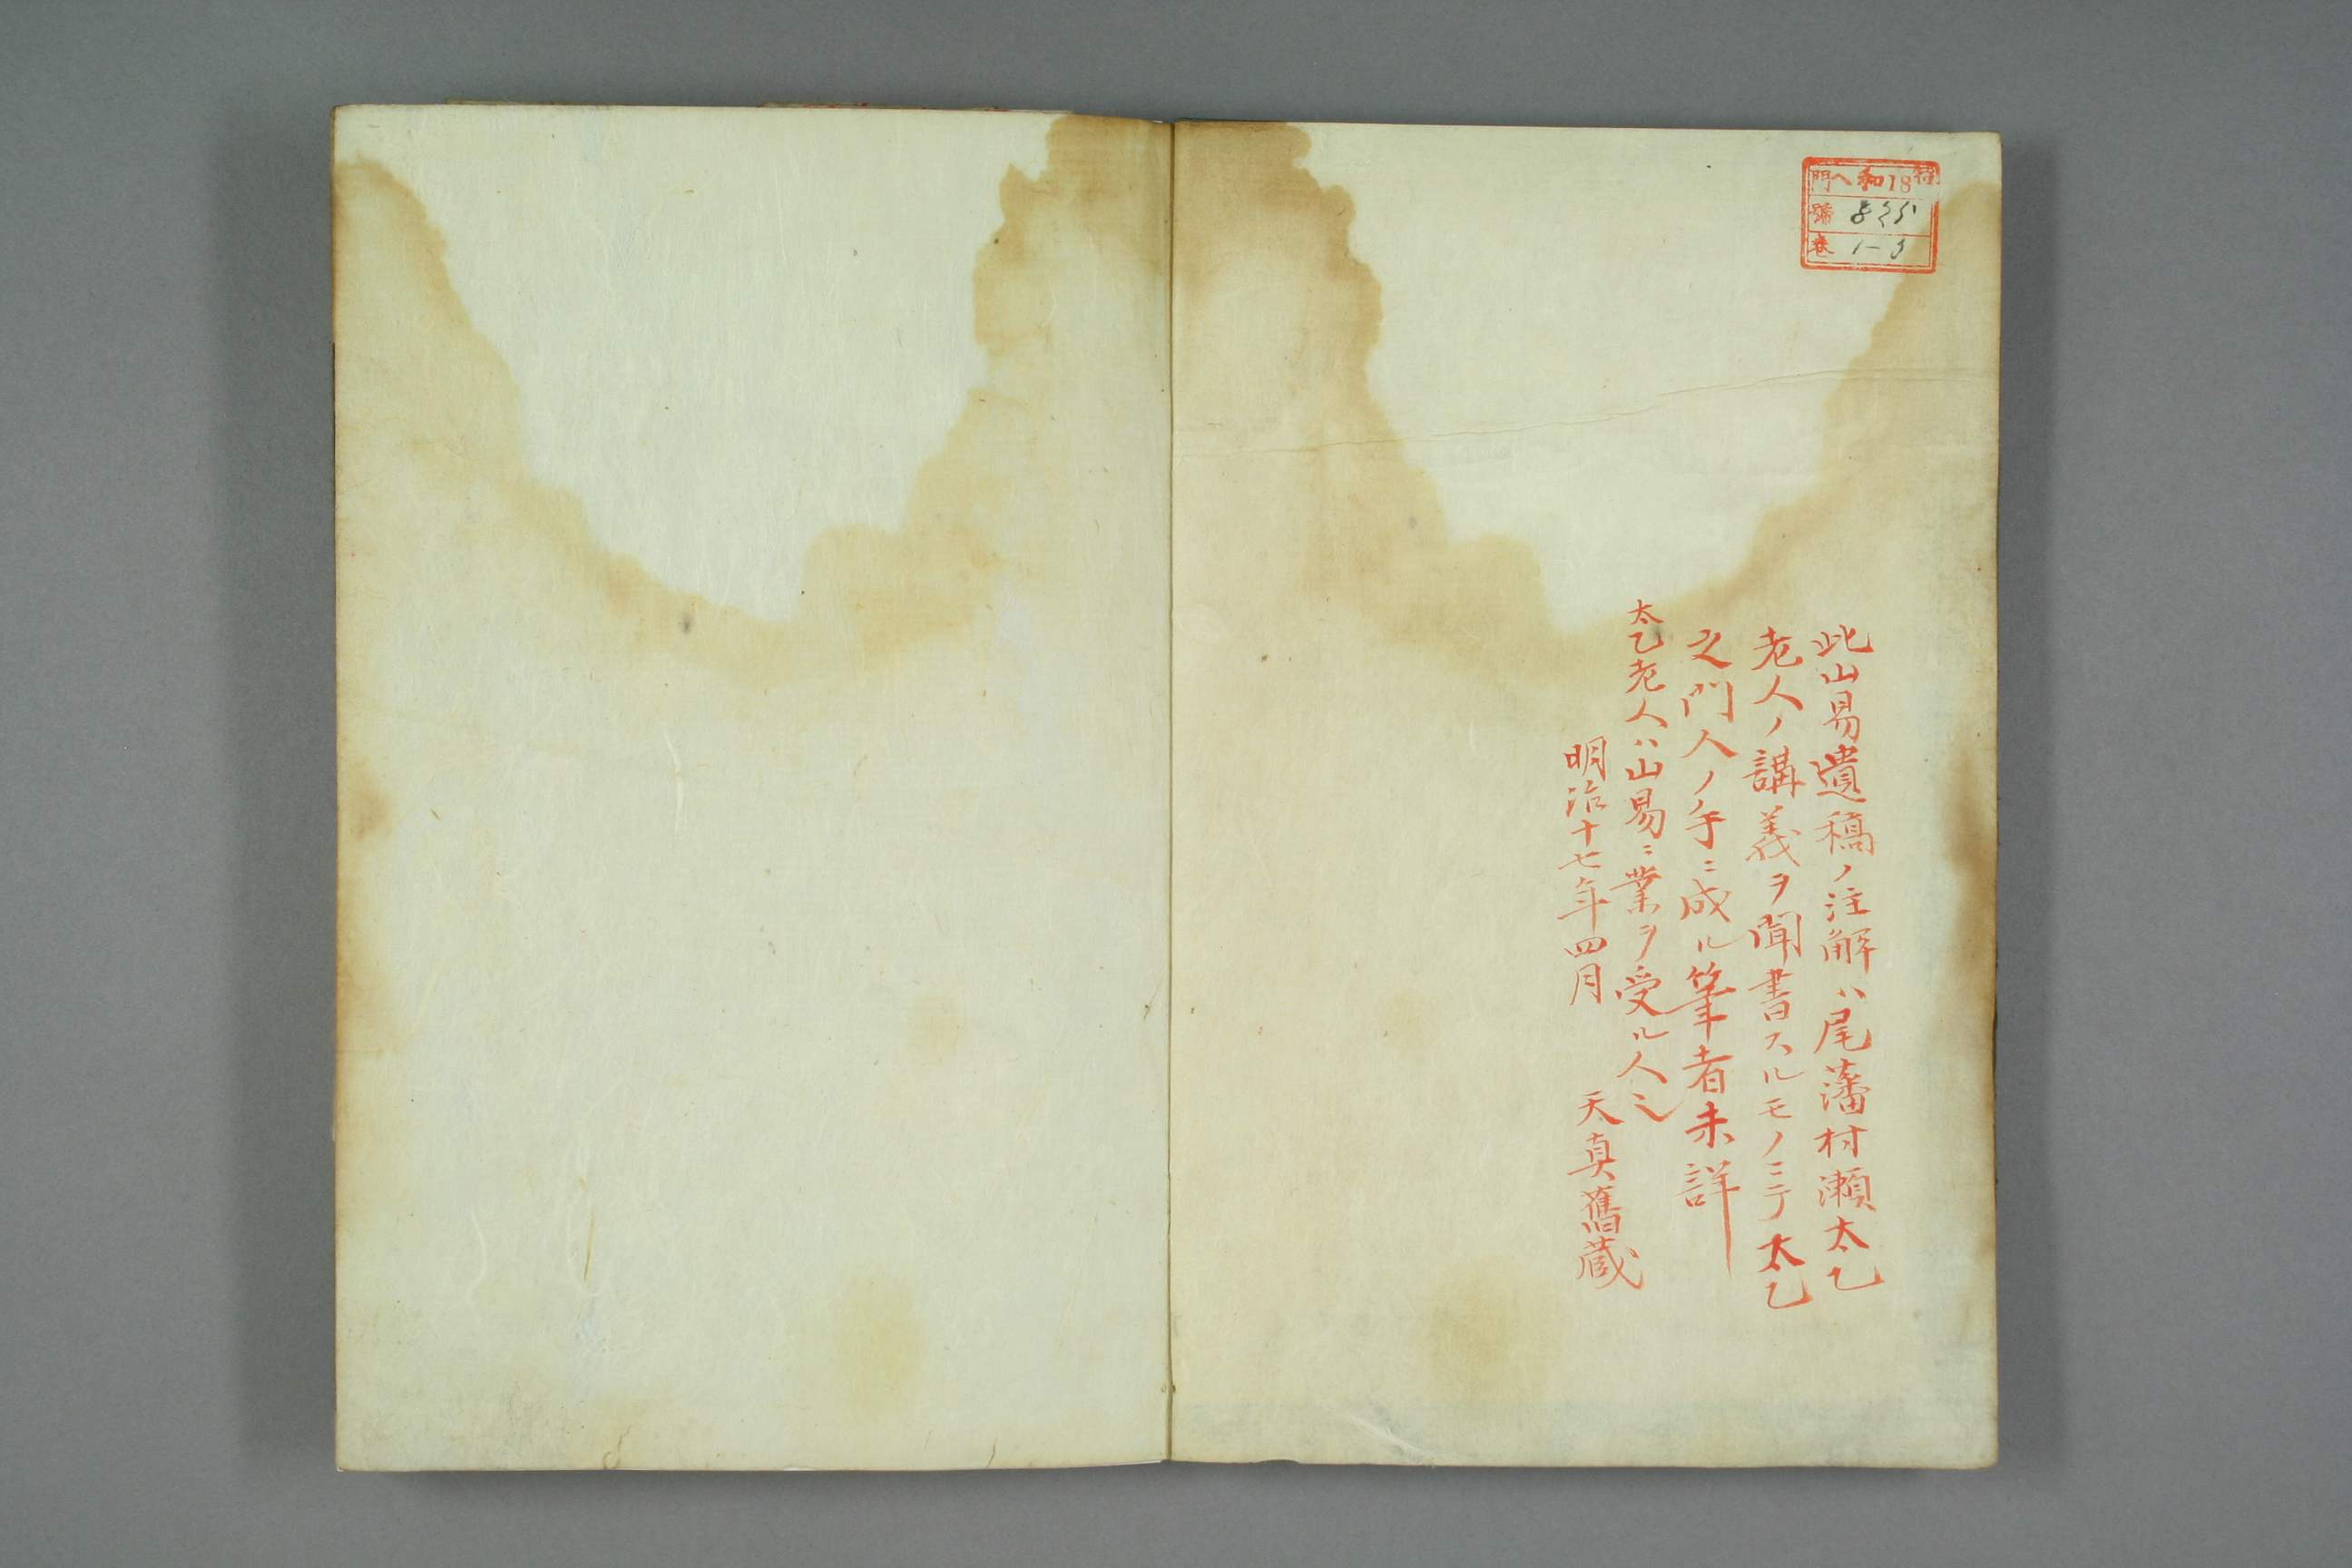 門ヘ和18特
號 825
卷 1-3
此山易遺稿ノ注解ハ尾藩村瀬太乙
老人ノ講義ヲ聞書スルモノニテ太乙
之門人ノ手ニ成ル筆者未詳
太乙老人ハ山易ニ業ヲ受ル人也
明治十七年四月
天真舊蔵